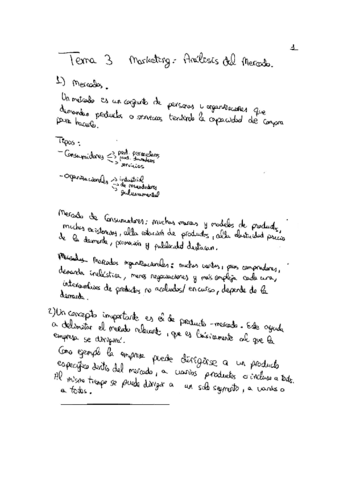 1
Tema 3 Marketing: Análisis del Mercado.
1) Mercados.
Un mercado es un conjunto de personas u organizaciones que
demandan productos o servicios teniendo la capacidad de compra
para hacerlo.
Tipos:
- Consumidores prod. perecederos
prod. duraderos
servicios
- organizacionales industrial
de revendedores
gubernamental
Mercado de Consumidores: muchas marcas y modelos de productos,
muchas existencias, alta rotación de productos, alta elasticidad precio
de la demanda, promoción y publicidad
Mercados organizacionales: muchas ventas, pocos compradores,
demanda inelástica, menos negociaciones y más complejas cada una,
intercambios de productos no acabados en curso, depende de la
demanda.
2) Un concepto importante es el de producto-mercado. Este ayuda
a delimitar el mercado relevante, que es al que la
empresa se dirigirá.
Como ejemplo la empresa puede dirigirse a un producto
específico dentro del mercado, a varios productos o incluso a todos.
Al mismo tiempo se puede dirigir a un solo segmento, a varios o
a todos.